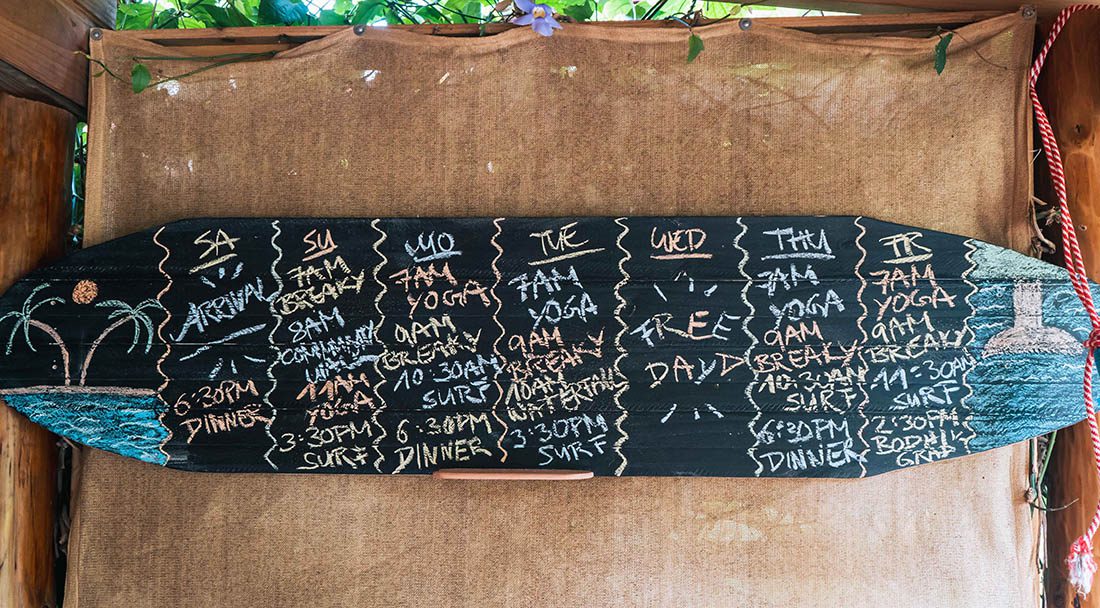 SA
ARRIVAL
6:30PM
DINNER
SU
7AM
BREAKY
8AM
11AM
YOGA
3:30PM
SURF
MO
7AM
YOGA
9AM
BREAKY
10:30AM
SURF
6:30PM
DINNER
TUE
7AM
YOGA
9AM
BREAKY
10AM
3:30PM
SURF
WED
FREE
DAY
THU
7AM
YOGA
9AM
BREAKY
10:30AM
SURF
6:30PM
DINNER
FR
7AM
YOGA
9AM
BREAKY
11:30AM
SURF
2:30PM